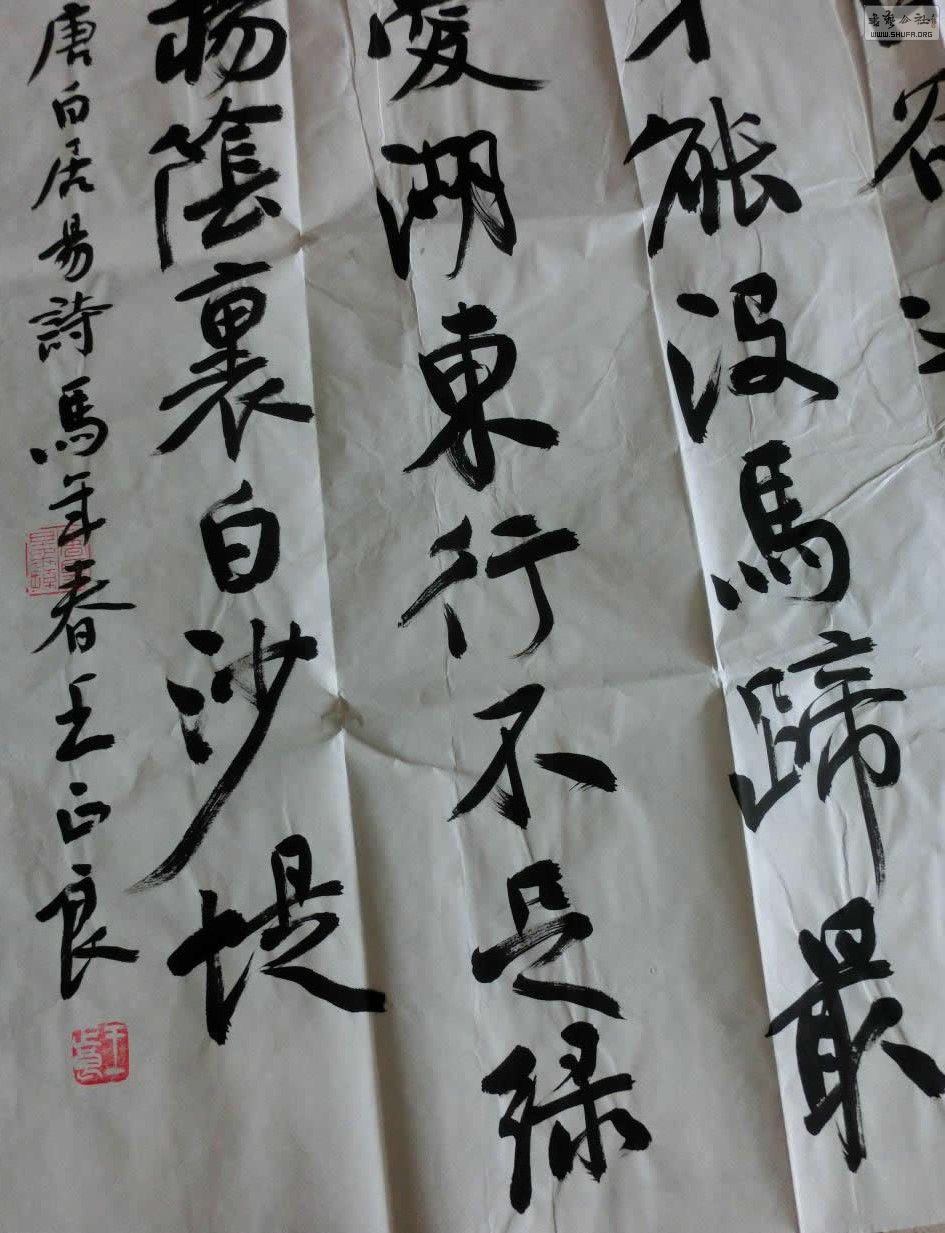 才能没馬蹄最
愛湖東行不足緑
楊蔭裏白沙堤
唐白居易詩馬年春王正良
書藝公社
WWW.SHUFA.ORG